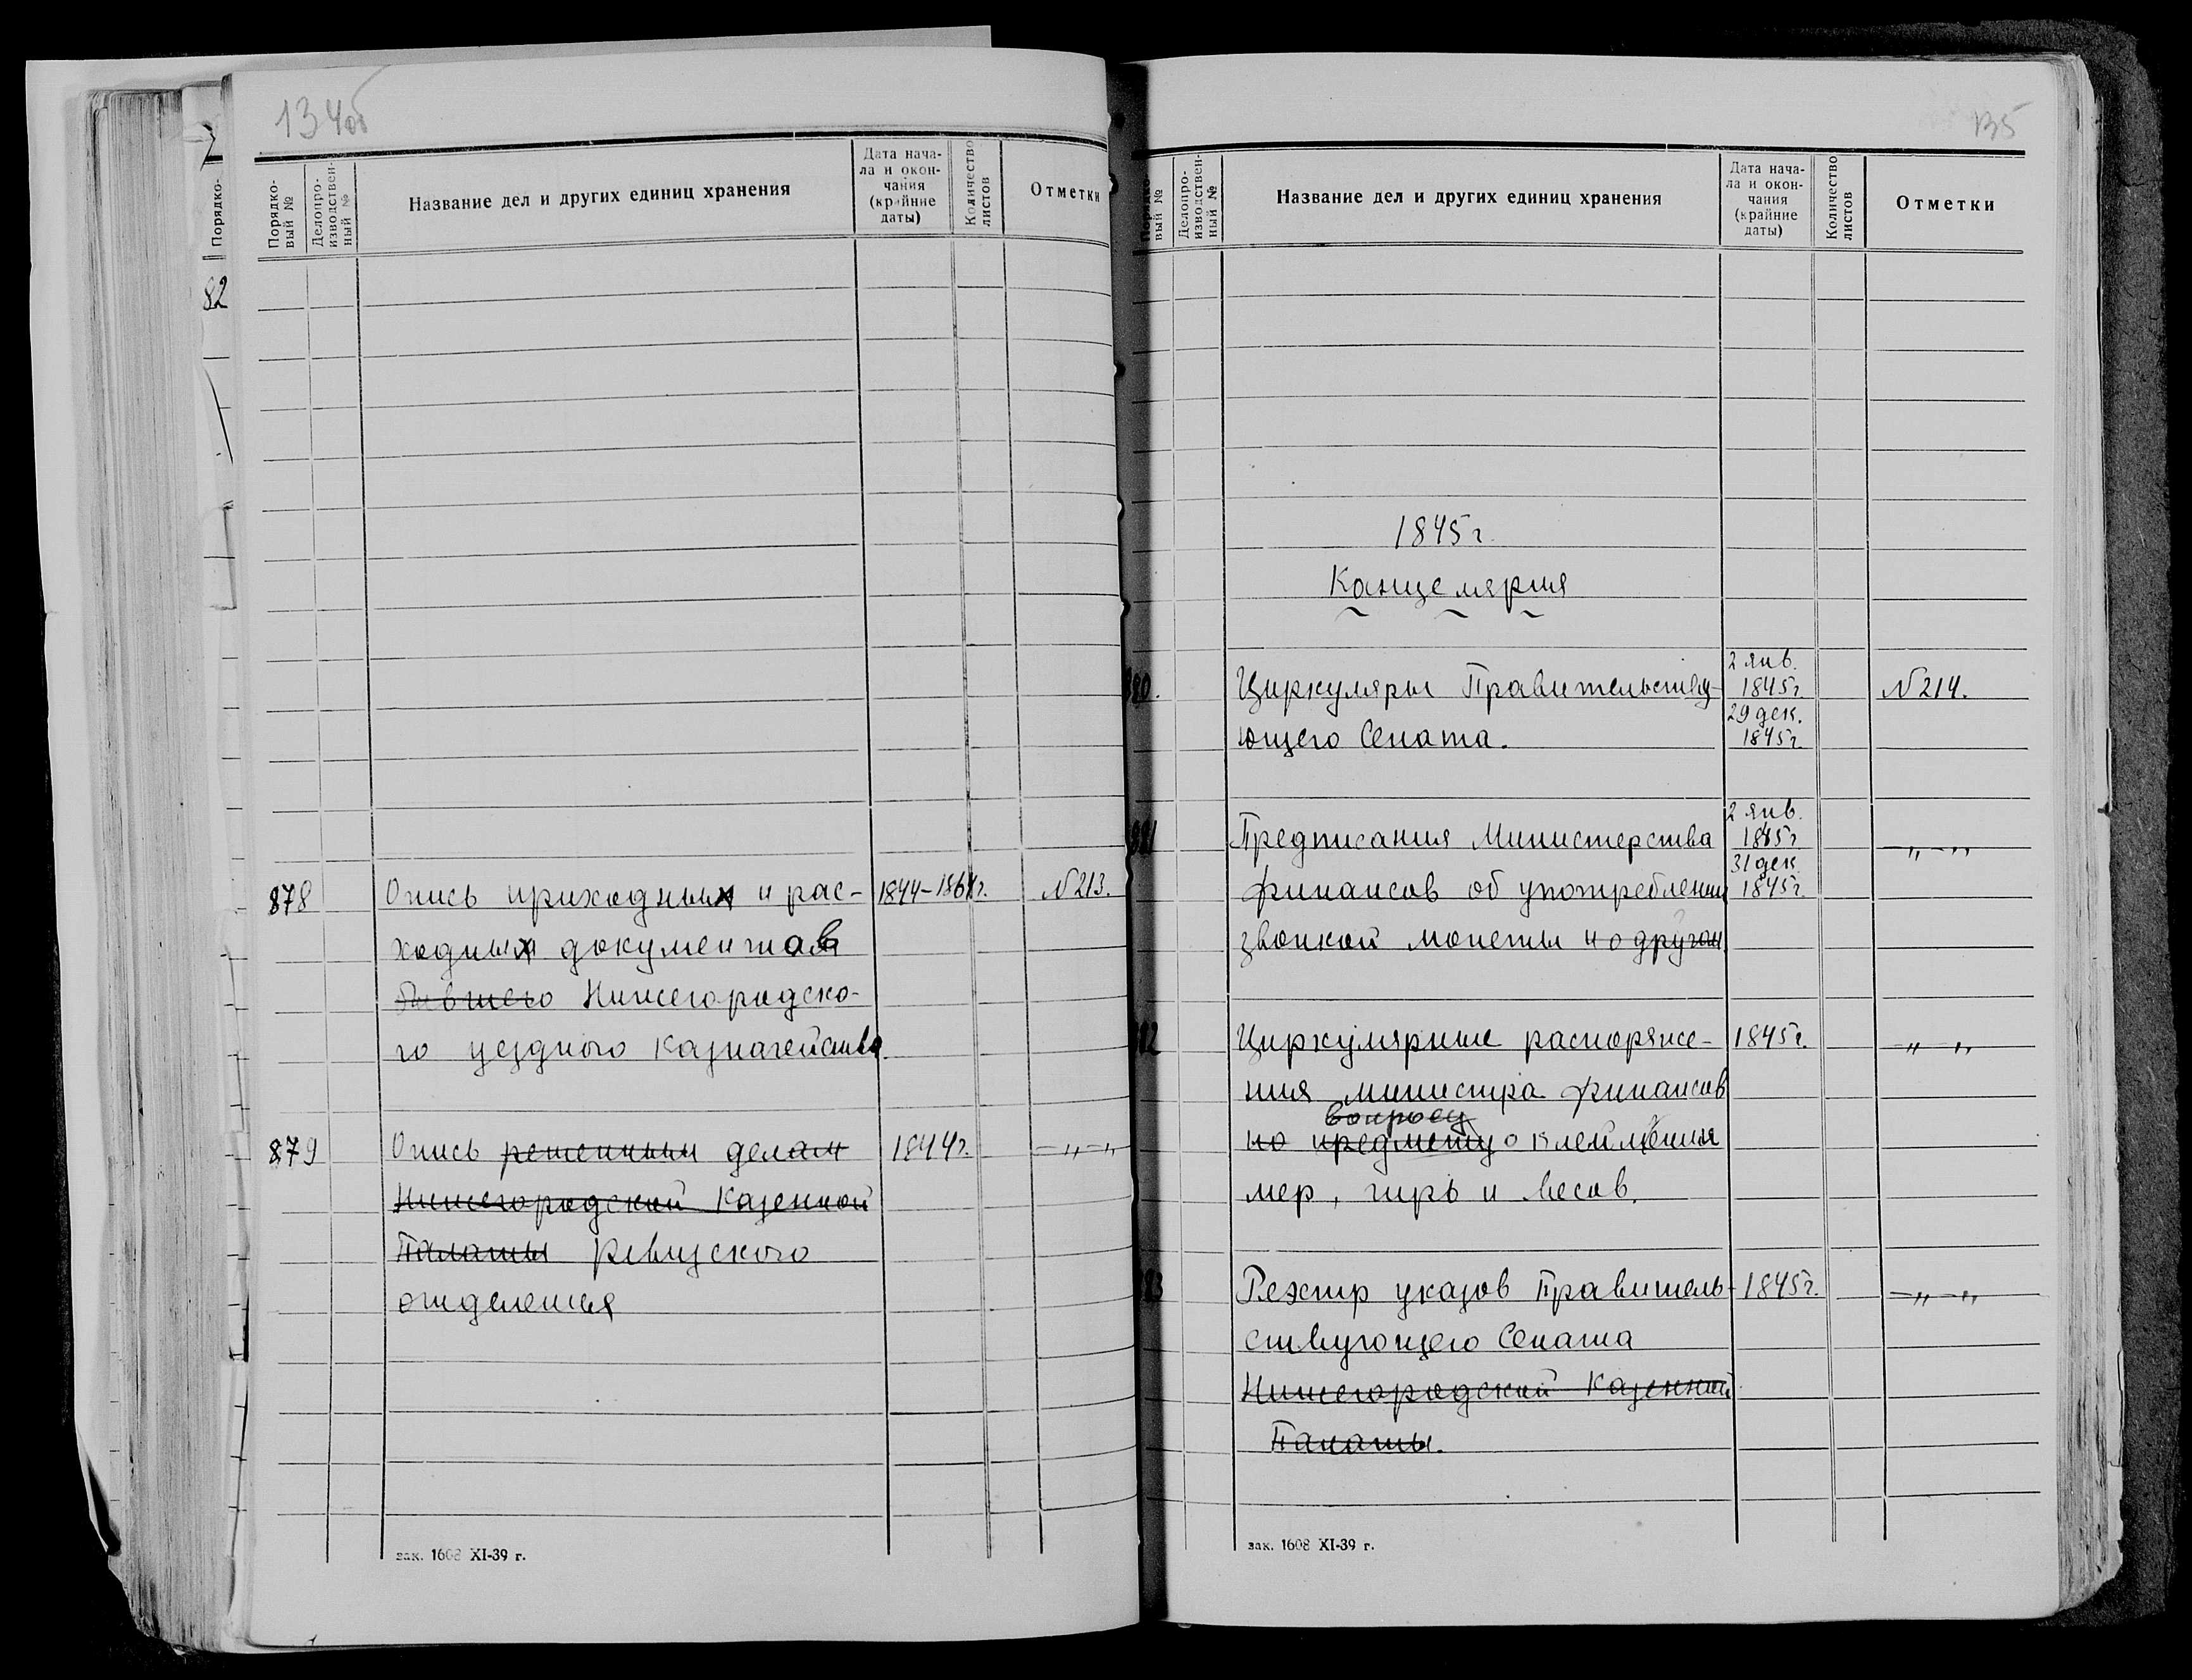 134об
Порядко-
82
Порядко-
вый №
Делопро-
изводствен-
ный №
Название дел и других единиц хранения
Дата нача-
ла и окон-
чания
(крайние
даты)
Количество
листов
Отметки
878 Опись приходных и рас- 1844–1861г. №213.
ходных документов
бывшего Нижегородско-
го уездного казначейства.
879 Опись решенным делам 1844г. —„—„
Нижегородской Казенной
Палаты Ревизского
отделения
зак. 1608 XI-39 г.
135
Порядко-
вый №
Делопро-
изводствен-
ный №
Название дел и других единиц хранения
Дата нача-
ла и окон-
чания
(крайние
даты)
Количество
листов
Отметки
1845г.
Канцелярия
2 янв.
880. Циркуляры Правительству- 1845г. №214.
29 дек.
ющего Сената. 1845г.
2 янв.
881 Предписания Министерства 1845г. —„—„
31 дек.
финансов об употреблении 1845г.
звонкой монеты и о другом
882 Циркулярные распоряже- 1845г. —„—„
ния министра финансов
вопросу
по предмету о клеймения
мер, гирь и весов.
883 Реэстр указов Правитель- 1845г. —„—„
ствующего Сената
Нижегородской Казенной
Палаты.
зак. 1608 XI-39 г.